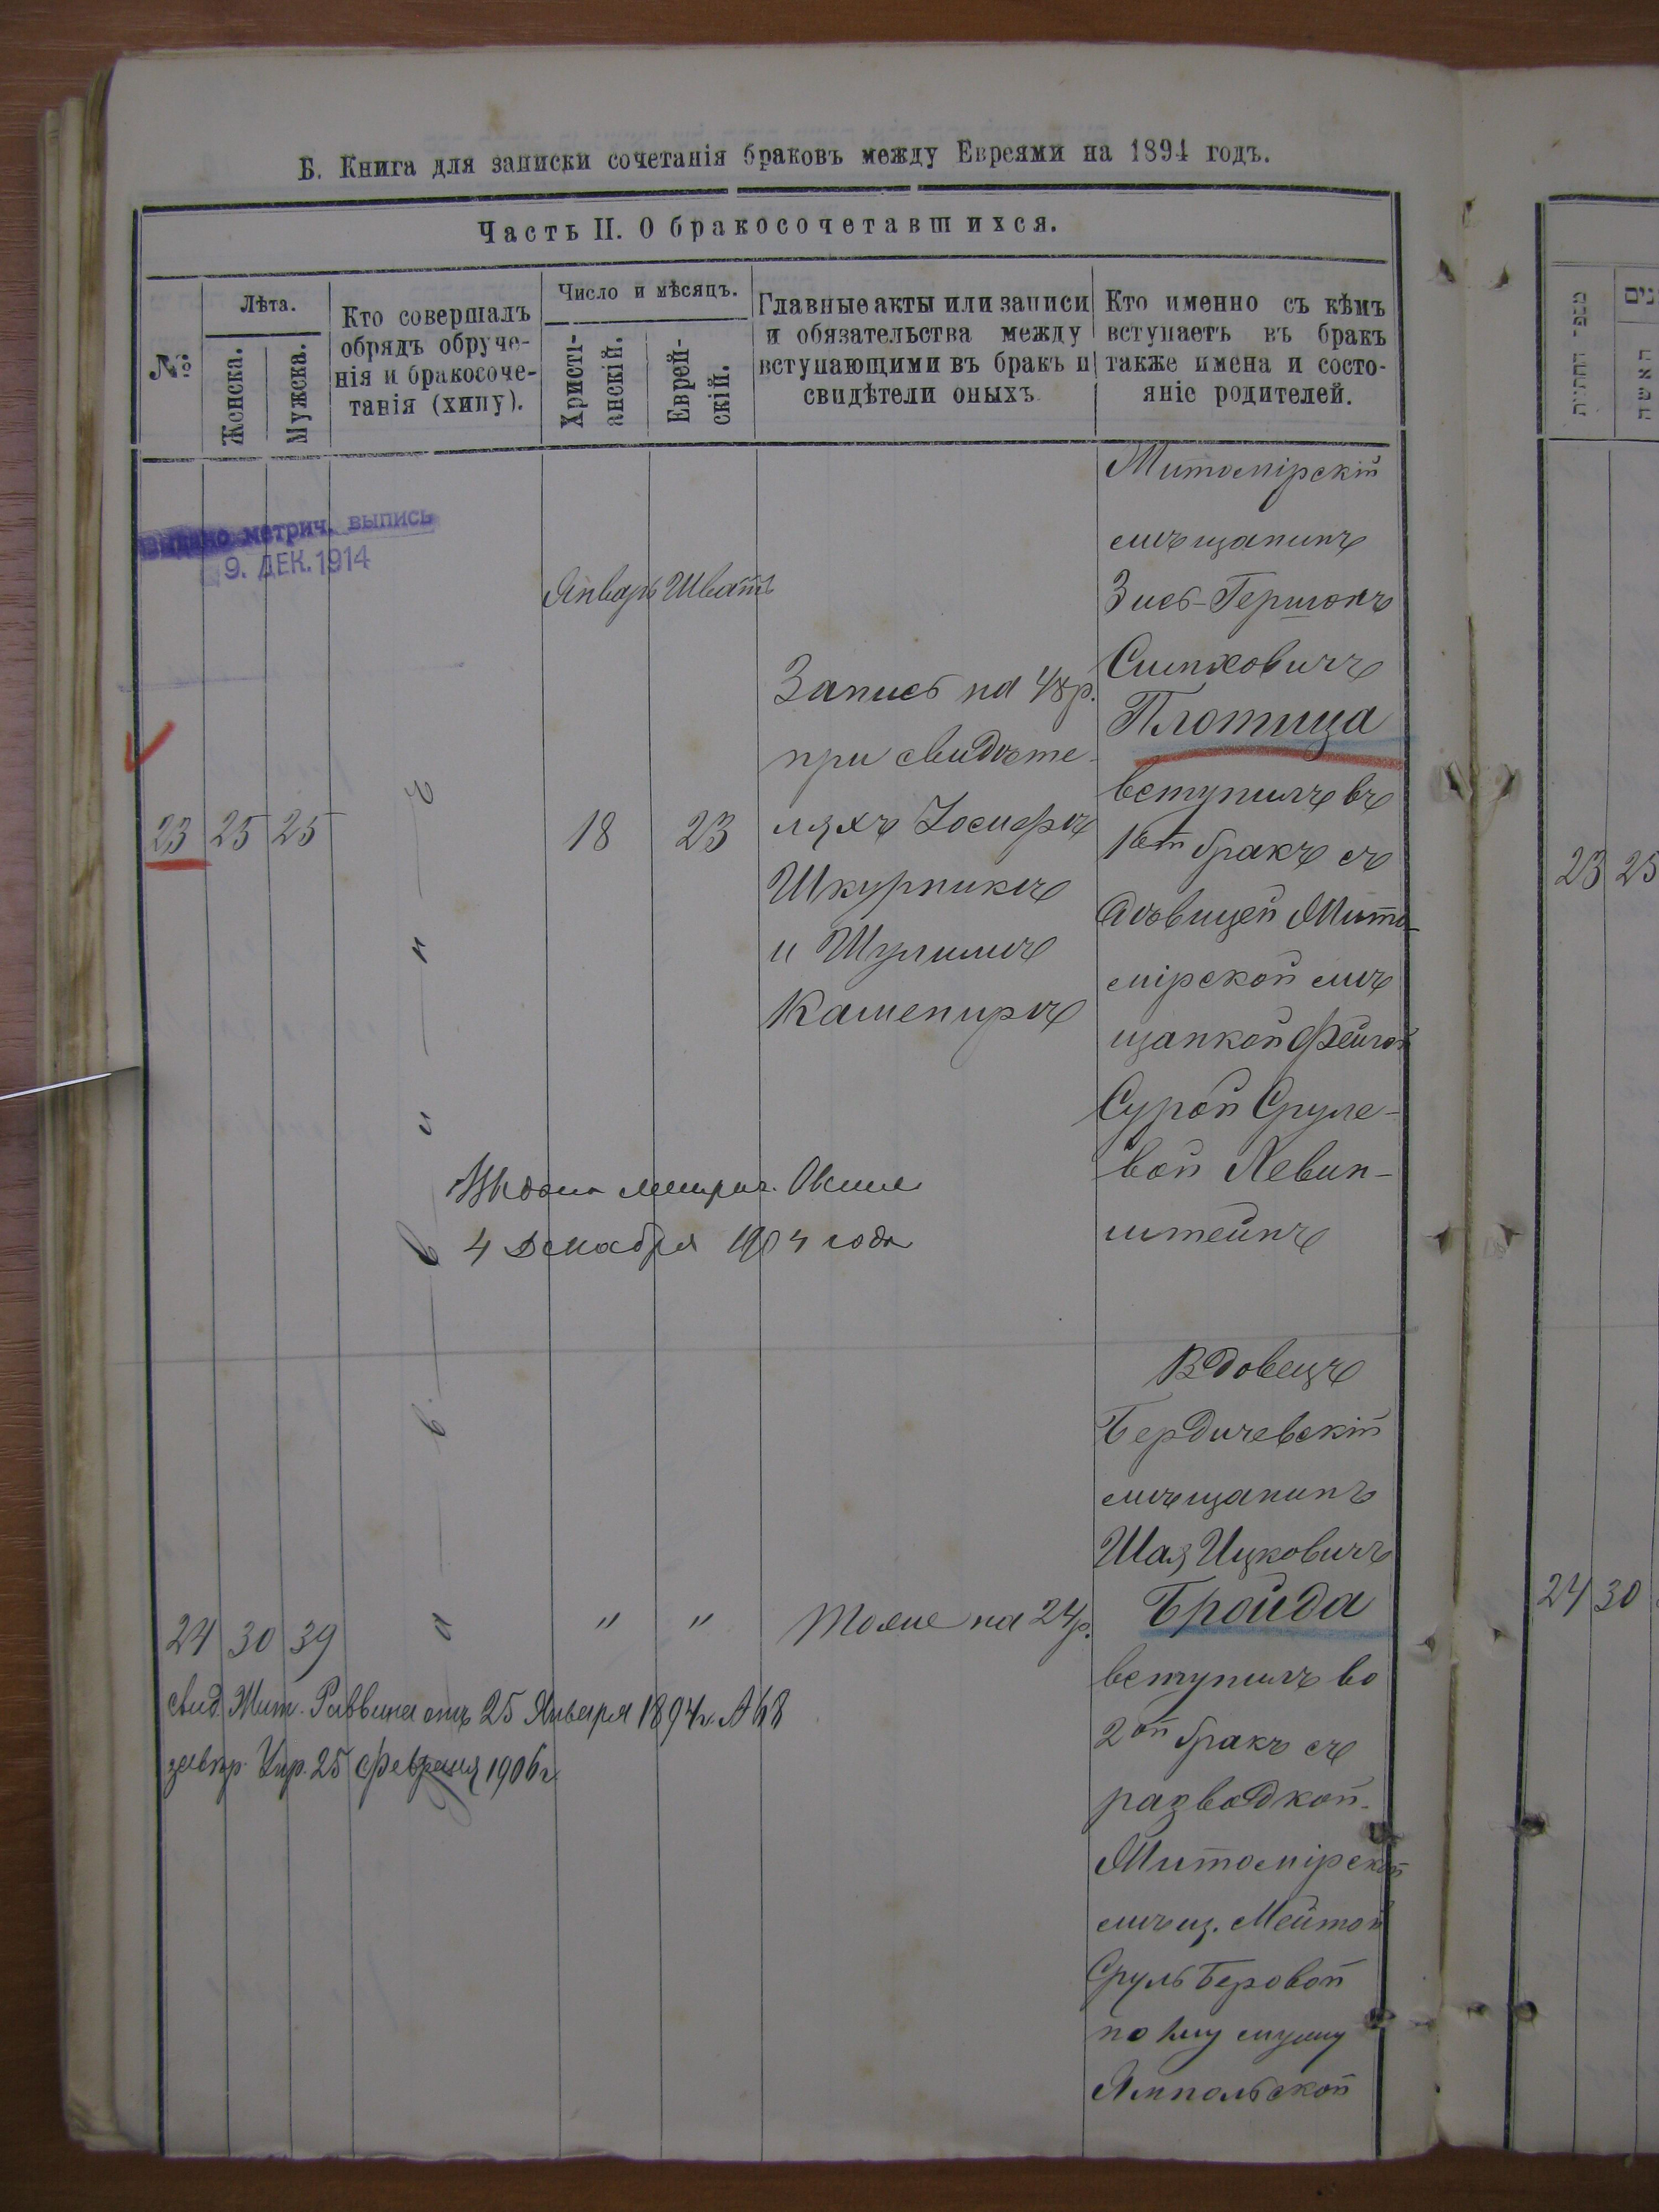 Б. Книга для записки сочетанія браковъ между Евреями на 1894 годъ.
Часть II. О бракосочетавшихся.
№
Лѣта.
Женска.
Мужска.
Кто совершалъ
обрядъ обруче-
нія и бракосоче-
танія (хипу).
Число и мѣсяцъ.
Христі-
анскій.
Еврей-
скій.
Главные акты или записи
и обязательства между
вступающими въ бракъ и
свидѣтели оныхъ
Кто именно съ кѣмъ
вступаетъ въ бракъ
также имена и состо-
яніе родителей.
Выдано метрич. выпись
9. ДЕК. 1914
Январь Шватъ
23 25 25
18 23
Запись на 48 р.
при свидѣте-
ляхъ Іосифѣ
Шкурникѣ
и Шулимѣ
Кашепирѣ
Житомірскій
мѣщанинъ
Зись-Гершонъ
Симховичъ
Плотица
вступилъ въ
1ый бракъ съ
дѣвицей Жито-
мірской мѣ
щанкой Фейгой
Сурой Сруле-
вой Левин-
штейнъ
4 Декабря 1904 года
24 30 39
" "
Тоже на 24 р.
Вдовецъ
Бердичевскій
мѣщанинъ
Шая Ицковичъ
Бройда
вступилъ во
2ой бракъ съ
разводкой
Житомірской
мѣщ. Мейтой
Сруль Беровой
по 1му мужу
Ямпольской
свид. Жит. Раввина отъ 25 Января 1894 г. № 48
Упр. 25 февраля 1906 г.
23 25
24 30